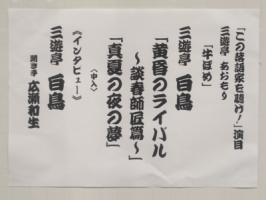 「この落語家を聴け！」演目
三遊亭 あおもり
「牛ほめ」
三遊亭 白鳥
「黄昏のライバル
～談春師匠篇～」
〈中入〉
「真夏の夜の夢」
《インタビュー》
三遊亭 白鳥
聞き手 広瀬和生